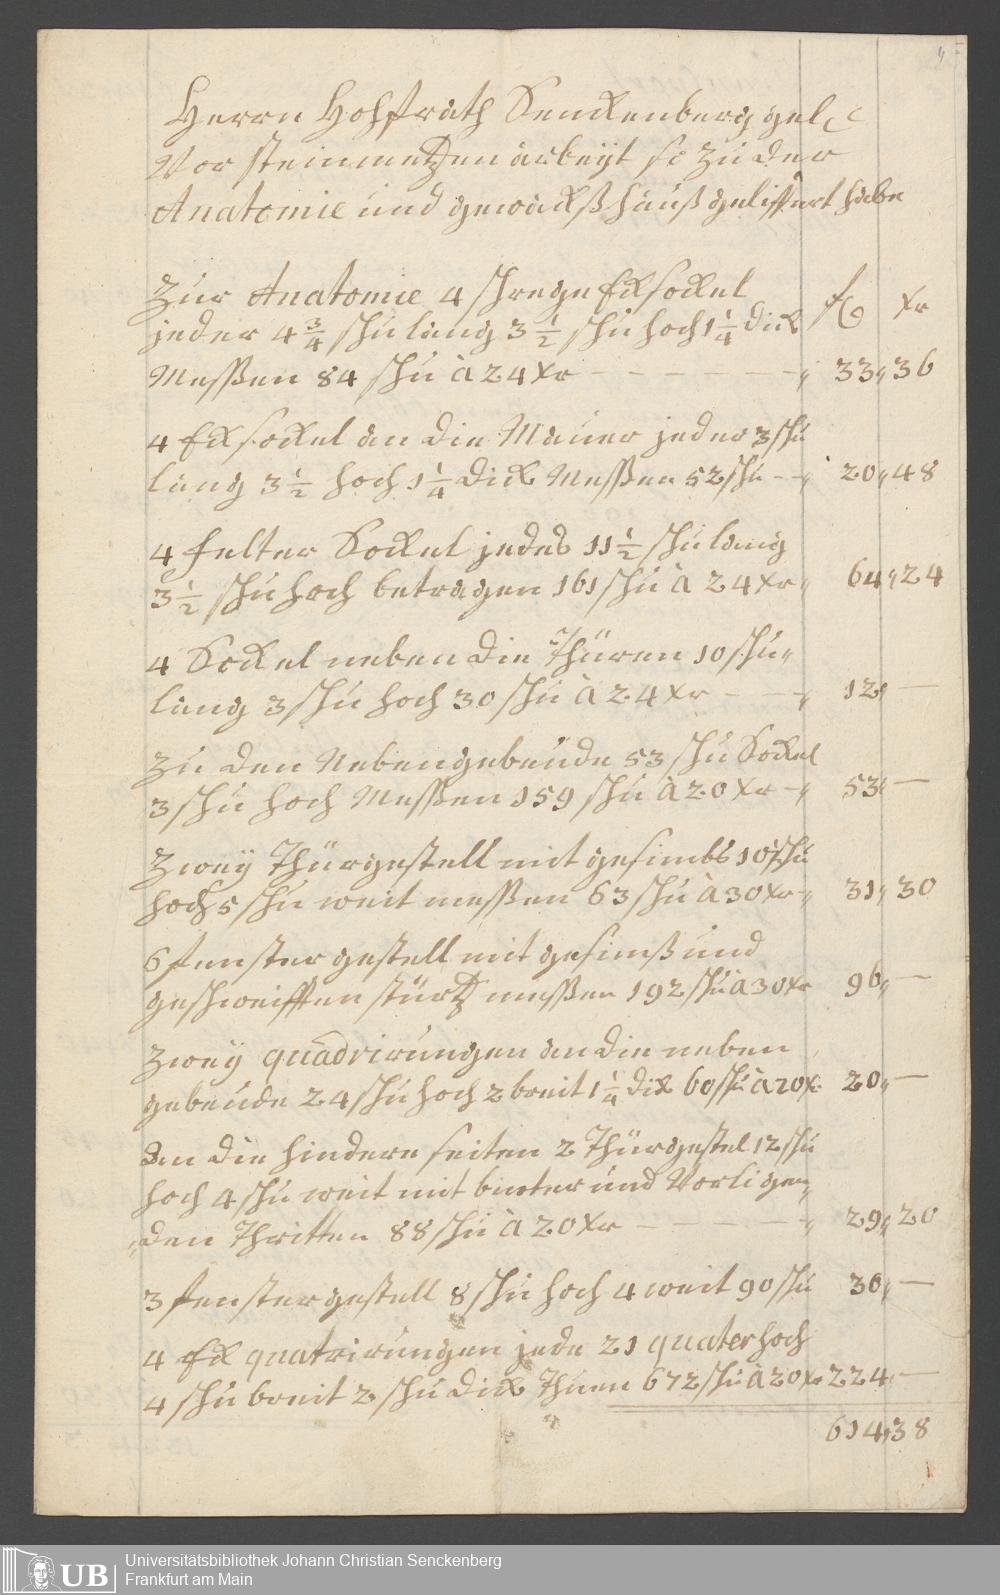 Herrn Hohffrath Senckenberg gel
Vor steinmetzen arbeÿt so zu der
Anatomie und gewäckßhauß geliffert habe
Zur Anatomie 4 schrege Ecksockel
jeder 4 3/4 schu lang 3 1/2 schu hoch 1 1/4 dick
Meßßen 84 schu à 24 Xr 33 36
fl Xr
4 Ecksockel an die Mauer jeder 3 schu
lang 3 1/2 hoch 1 1/4 dick Meßßen 52 schu 20 48
4 felter Sockel jedes 11 1/2 schu lang
3 1/2 schu hoch betragen 161 schu à 24 Xr 64 24
4 Sockel neben die Thüren 10 schu
lang 3 schu hoch 30 schu à 24 Xr 12 —
Zu den Nebengebeude 53 schu Sockel
3 schu hoch Meßßen 159 schu à 20 Xr 53 —
Zweÿ Thürgestell mit gesimbs 10 schu
hoch 5 schu weit meßßen 63 schu à 30 Xr 31 30
6 fenster gestell mit gesimß und
geschweifften stürtz meßßen 192 schu à 30 Xr 96 —
Zweÿ quadrirungen an die neben
gebeude 24 schu hoch 2 breit 1 1/4 dick 60 schu à 20 Xr 20 —
an die hindere seiten 2 Thürgestel 12 schu
hoch 4 schu weit mit und Vorligen
den Thritten 88 schu à 20 Xr 29 20
3 fenstergestell 8 schu hoch 4 weit 90 schu 30 —
4 Eck quatrirungen jede 21 quater hoch
4 schu breit 2 schu dick Thuen 672 schu à 20 Xr 224 —
614 38
UB Universitätsbibliothek Johann Christian Senckenberg
Frankfurt am Main